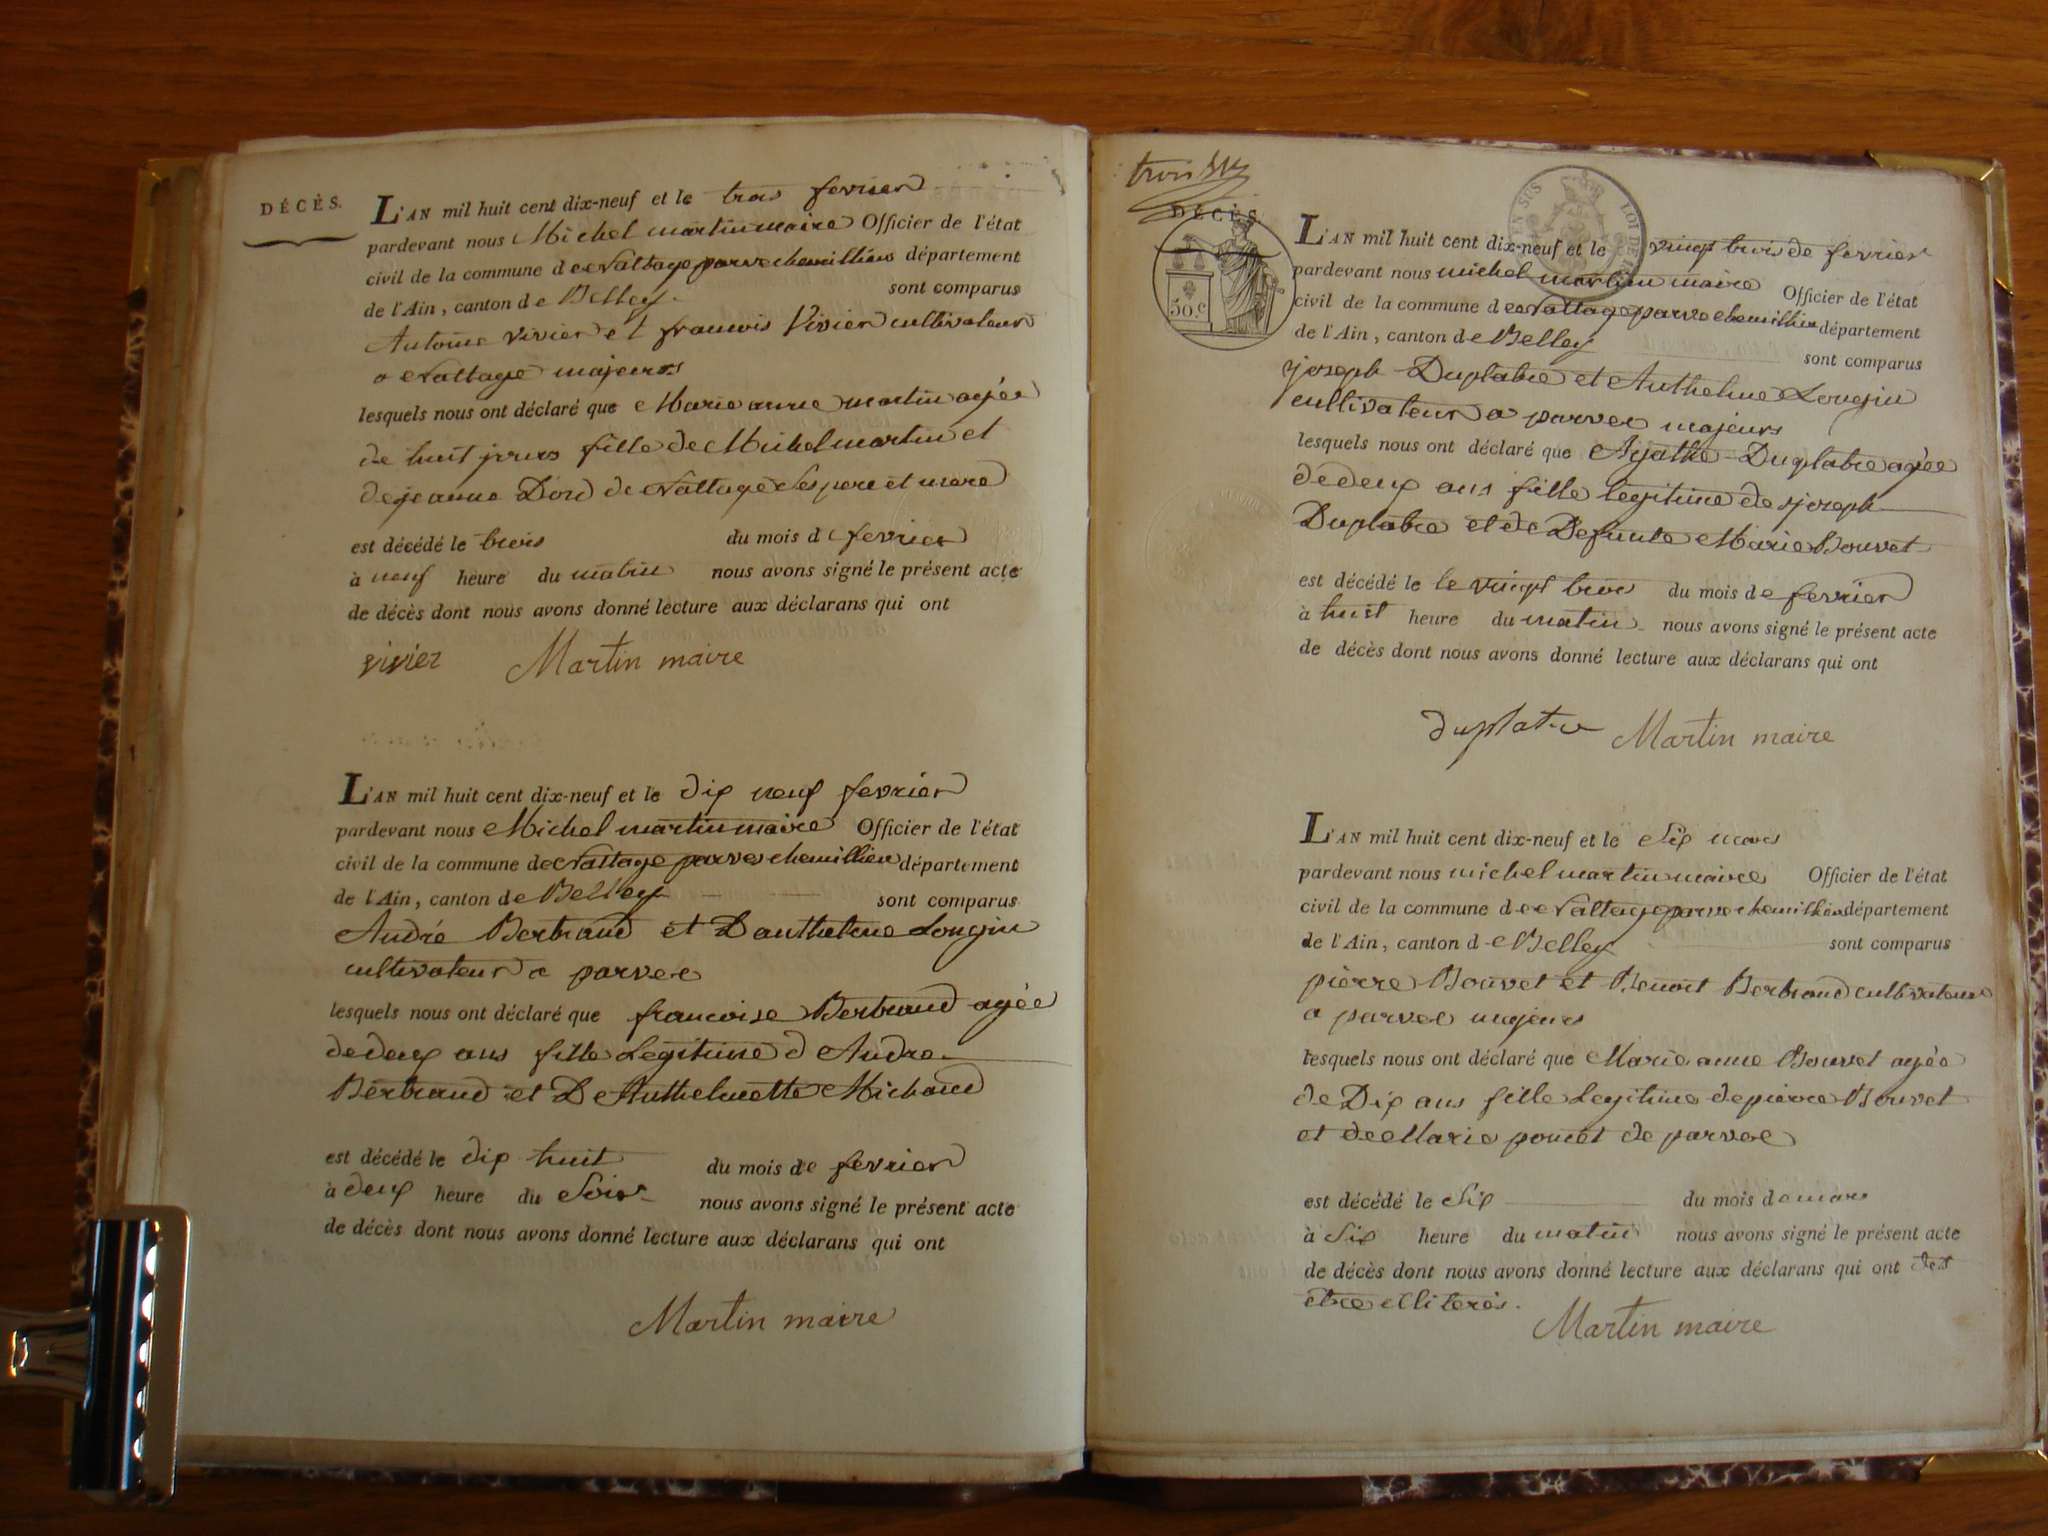 DÉCÈS.
L'AN mil huit cent dix-neuf et le trois fevrier
pardevant nous Michel martin maire Officier de l'état
civil de la commune de Nattage parve chemillieu département
de l'Ain, canton de Belley. sont comparus
Antoine vivier et francois Vivier cultivateur
a Nattage majeurs
lesquels nous ont déclaré que Marie anne martin agée
de huit jours fille de Michel martin et
de jeanne Dord de Nattage Ses pere et mere
est décédé le trois du mois de fevrier
à neuf heure du matin nous avons signé le présent acte
de décès dont nous avons donné lecture aux déclarans qui ont
vivier Martin maire
L'AN mil huit cent dix-neuf et le dix neuf fevrier
pardevant nous Michel martin maire Officier de l'état
civil de la commune de Nattage parves chemillieu département
de l'Ain, canton de Belley sont comparus
André Bertrand et Danthelme Longin
cultivateur a parvee
lesquels nous ont déclaré que francoise Bertrand agée
de deux ans fille Legitime d Andre
Bertrand et De Anthelmette Michaud
est décédé le dix huit du mois de fevrier
à deux heure du Soir nous avons signé le présent acte
de décès dont nous avons donné lecture aux déclarans qui ont
Martin maire
trois
DÉCÈS
50.c
L'AN mil huit cent dix-neuf et le vingt trois de fevrier
pardevant nous michel martin maire Officier de l'état
civil de la commune de Nattage parve chemillieu département
de l'Ain, canton de Belley sont comparus
joseph Duplatre et Anthelme Longin
cultivateur a parvee majeurs
lesquels nous ont déclaré que Agathe Duplatre agée
de deux ans fille legitime de joseph
Duplatre et de Defunte Marie Bouvet
est décédé le le vingt trois du mois de fevrier
à huit heure du matin nous avons signé le présent acte
de décès dont nous avons donné lecture aux déclarans qui ont
duplatre Martin maire
L'AN mil huit cent dix-neuf et le Six mars
pardevant nous michel martin maire Officier de l'état
civil de la commune de Nattage parve chemillieu département
de l'Ain, canton de Belley sont comparus
pierre Bouvet et Benoit Bertrand cultivateur
a parvee majeurs
lesquels nous ont déclaré que Marie anne Bouvet agée
de Dix ans fille Legitime de pierre Bouvet
et de Marie poncet de parvee
est décédé le Six du mois de mars
à Six heure du matin nous avons signé le présent acte
de décès dont nous avons donné lecture aux déclarans qui ont dit
etre illiterés.
Martin maire